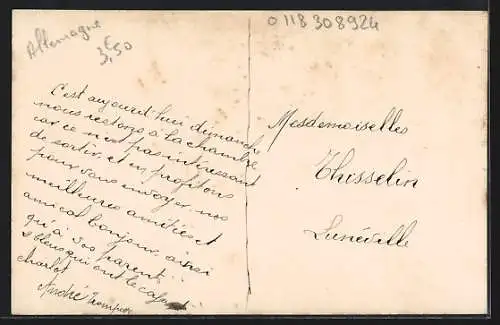 Allemagne
3,50
0118 308924
C'est aujourd'hui dimanche
nous restons à la chambre
car ce n'est pas intéressant
de sortir et en profitons
pour vous envoyer nos
meilleures amitiés et
amical bonjour ainsi
qu'à vos parents
2 bleus qui ont le cafard
Charlot
André
Mesdemoiselles
Thisselin
Lunéville